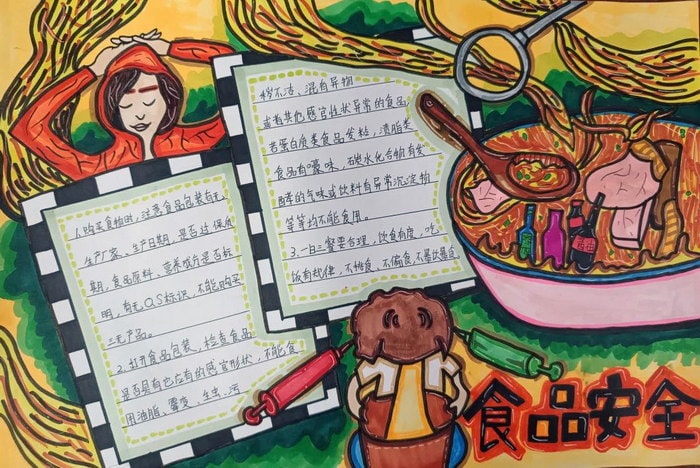 1.购买食物时，注意食品包装有无
生产厂家、生产日期，是否过保质
期，食品原料、营养成分是否标
明，有无QS标识，不能购买
三无产品。
2.打开食品包装，检查食品
是否具有它应有的感官形状，不能食
用油脂、霉变、生虫、污
秽不洁、混有异物
或者其他感官性状异常的食品，
若蛋白质类食品发粘，渍脂类
食品有嚎味，碳水化合物有发
酵的气味或饮料有异常沉淀物
等等均不能食用。
3.一日三餐要合理，饮食有度，吃
饭有规律，不挑食、不偏食不暴饮暴食
食品安全